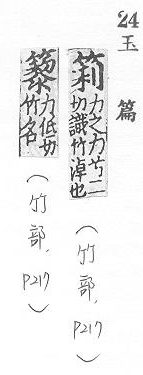 24 玉篇
筣 力之力兮二
切識竹淖也
（竹部，P217）
䉫 力低切
竹名
（竹部，P217）